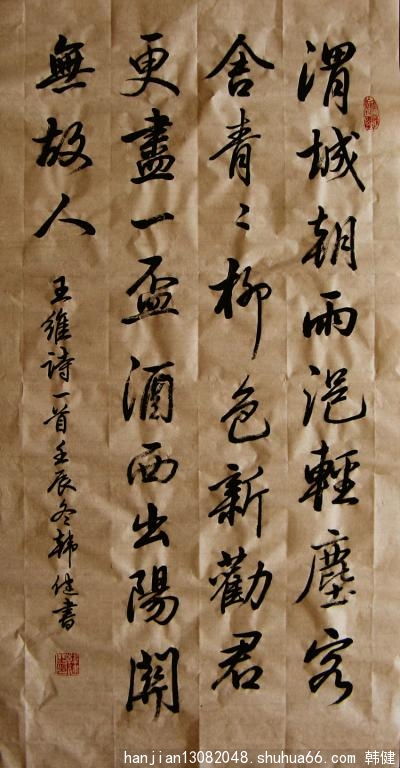 渭城朝雨浥輕塵客
舍青〻柳色新勸君
更盡一盃酒西出陽關
無故人
王維詩一首壬辰冬韩健書
hanjian13082048.shuhua66.com 韩健